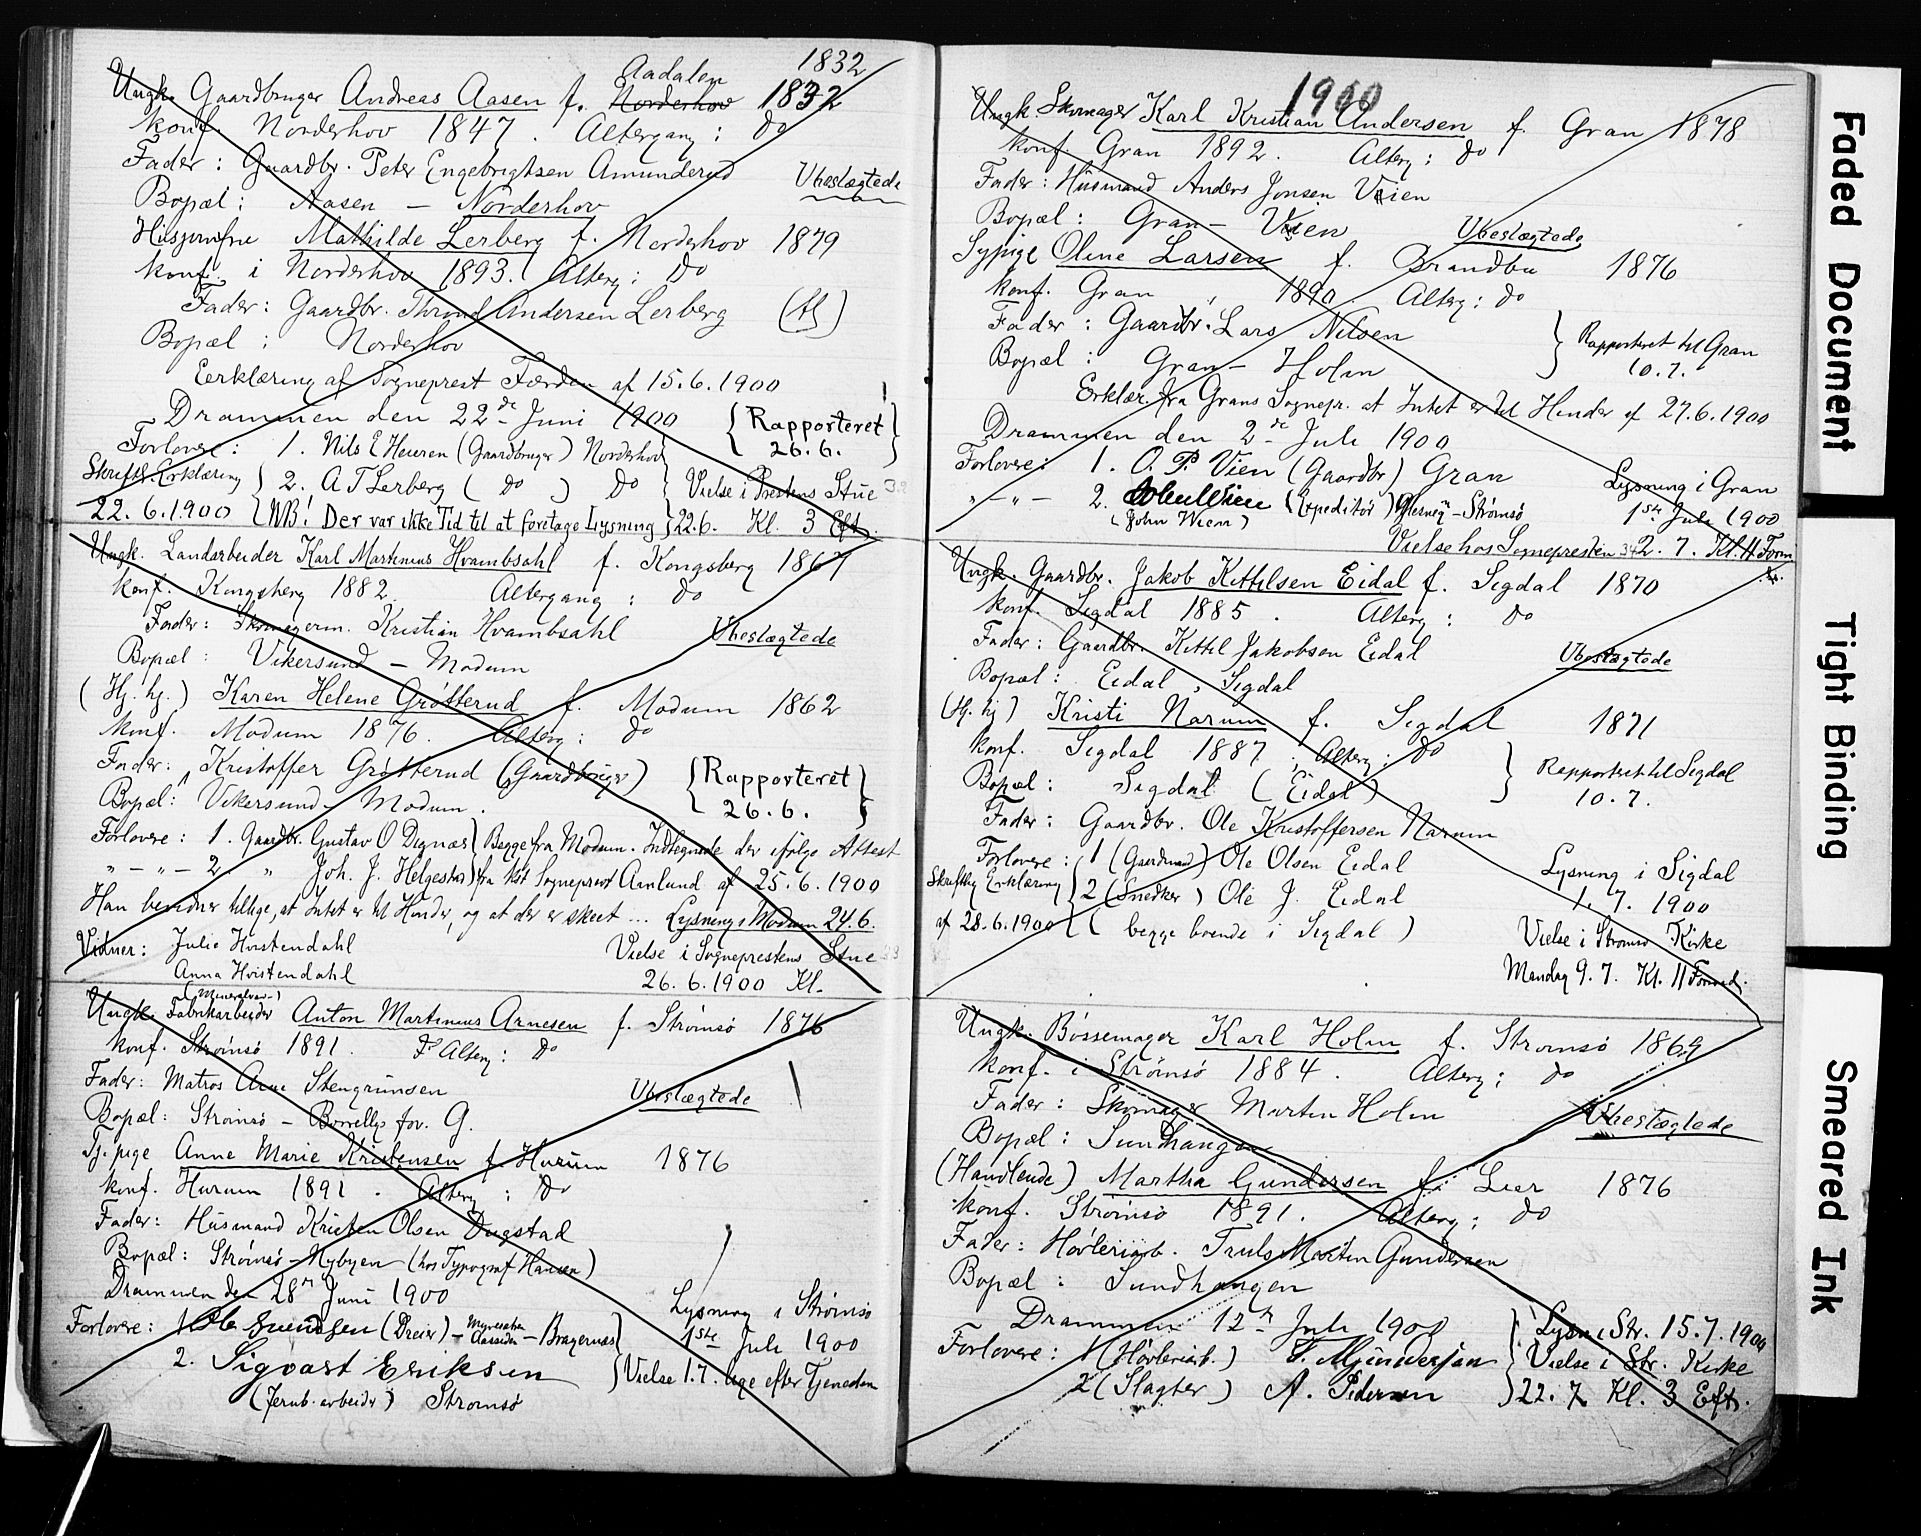 1832
Aadalen
Ungk. Gaardbruger Andreas Aasen f. Norderhov 1832
konf. Norderhov 1847. Altergang: do
Fader: Gaardbr. Peter Engebrigtsen Amunderud
Ubeslægtede
Bopæl: Aasen – Norderhov
Husjomfru Mathilde Lerberg f. Norderhov 1879
konf. i Norderhov 1893. Alterg: do
Fader: Gaardbr. Thrond Andersen Lerberg
Bopæl: Norderhov
Eerklæring af Sogneprest Færden af 15.6.1900
Drammen den 22de Juni 1900
{Rapporteret
26.6.}
Forlovere: 1. Nils E Heieren (Gaardbruger) Norderhov
Skriftl. Erklæring } 2. A T Lerberg ( do ) do } Vielse i Prestens Stue
22.6.1900 {NB! Der var ikke Tid til at foretage Lysning} 22.6. Kl. 3 Eft.
Ungk. Landarbeider Karl Martinius Hvambsahl f. Kongsberg 1867
konf. Kongsberg 1882. Altergang: do
Fader: Skomagerm. Kristian Hvambsahl
Ubeslægtede
Bopæl: Vikersund – Modum
(Hj. hj.) Karen Helene Grøtterud f. Modum 1862
konf. Modum 1876. Alterg: do
Fader: Kristoffer Grøtterud (Gaardbruger)
{Rapporteret
26.6.}
Bopæl: Vikersund – Modum.
Forlovere: 1. Gaardbr. Gustav O Dignæs } Begge fra Modum. Indtegnede der ifølge Attest
" – " – 2. " Joh. J. Helgestad } fra Kst Sogneprest Amlund af 25.6.1900
Han bevidner tillige, at Intet er til Hinder, og at der er skeet ... Lysning i Modum 24.6.
Vidner: Julie Hvistendahl
Vielse i Sogneprestens Stue
Anna Hvistendahl
26.6.1900 Kl.
(Mineralvan-)
Ungk. Fabrikarbeider Anton Martinius Arnesen f. Strømsø 1876
konf. Strømsø 1891. Alterg: do
Fader: Matros Arne Stengrimsen
Ubeslægtede
Bopæl: Strømsø – Borrellys for. G.
Tj. pige Anne Marie Kristensen f. Hurum 1876
konf. Hurum 1891. Alterg: do
Fader: Husmand Kristen Olsen Dugstad
Bopæl: Strømsø – Nybyen (hos Typograf Hansen)
Drammen den 28de Juni 1900
Lysning i Strømsø
Forlovere: 1. Ole Svendsen (Dreier) – – Bragernæs
1ste Juli 1900
2. Sigvart Eriksen
Vielse 1.7. lige efter Tjenesten
(Jernb. arbeider) Strømsø
1900
Ungk. Skomager Karl Kristian Andersen f. Gran 1878
konf. Gran 1892. Alterg: do
Fader: Husmand Anders Jonsen Vien
Bopæl: Gran – Vien
Ubeslægtede
Sypige Oline Larsen f. Brandbu 1876
konf. Gran 1890. Alterg: do
Fader: Gaardbr. Lars Nilsen
} Rapporteret til Gran
10.7.
Bopæl: Gran – Holm
Erklær. fra Grans Sognepr. at Intet er til Hinder af 27.6.1900
Drammen den 2de Juli 1900
Forlovere: 1. O. P. Vien (Gaardbr) Gran
Lysning i Gran
" – " – 2. John Wien (Expeditør) – Strømsø
1ste Juli 1900
(John Wiem)
Vielse hos Sognepresten 2.7. Kl. 11 Form
Ungk. Gaardbr. Jakob Kittelsen Eidal f. Sigdal 1870
konf. Sigdal 1885. Alterg: do
Fader: Gaardbr. Kittil Jakobsen Eidal
Ubeslægtede
Bopæl: Eidal, Sigdal
(Hj. hj) Kristi Narum f. Sigdal 1871
konf. Sigdal 1887. Alterg: do
} Rapporteret til Sigdal
10.7.
Bopæl: Sigdal (Eidal)
Fader: Gaardbr. Ole Kristoffersen Narum
Forlovere: 1 (Gaardmand) Ole Olsen Eidal
Lysning i Sigdal
Skriftlig Erklæring 2 (Snedker) Ole J. Eidal
1.7. 1900
af 28.6.1900 (begge boende i Sigdal)
Vielse i Strømsø Kirke
Mandag 9.7. Kl. 11 Formd.
Ungk. Bøssemager Karl Holm f. Strømsø 1869
konf. i Strømsø 1884. Alterg: do
Fader: Skomager Martin Holm
Ubeslægtede
Bopæl: Sundhaugen
(Handlende) Martha Gundersen f. Lier 1876
konf. Strømsø 1891. Alterg: do
Fader: Høvleriarb. Truls Martin Gundersen
Bopæl: Sundhaugen
Drammen 12te Juli 1900
} Lysn. i Str. 15.7.1900
Forlovere: 1 (Høvleriarb.) T. M Gundersen } Vielse i Str. Kirke
2 (Slagter) A. Pedersen } 22.7 Kl. 3 Eft.
Faded Document
Tight Binding
Smeared Ink